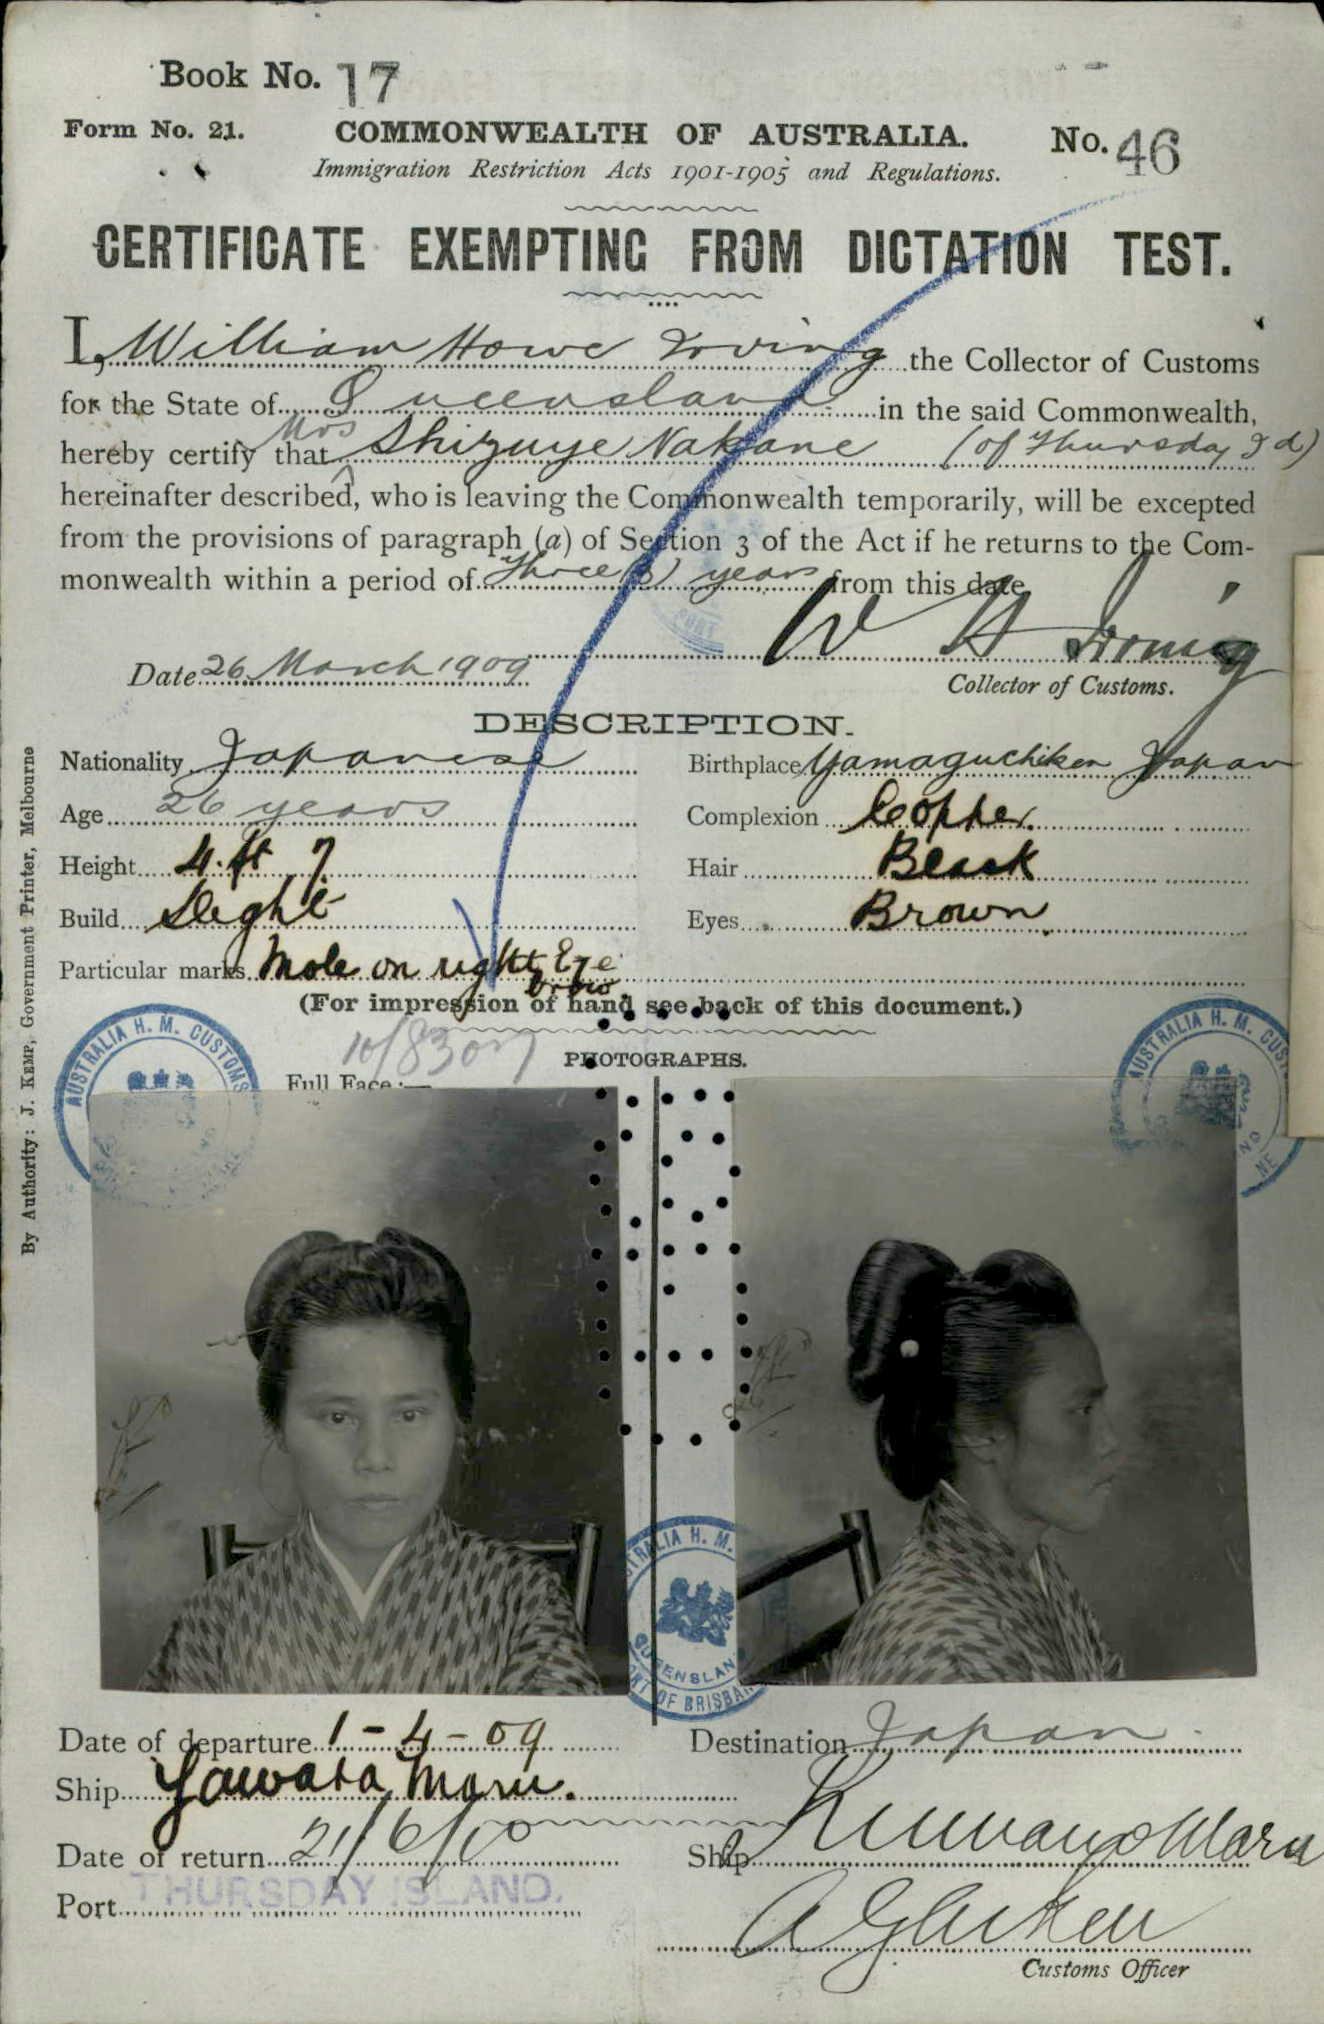 Book No. 17
Form No. 21. COMMONWEALTH OF AUSTRALIA. No. 46
Immigration Restriction Acts 1901-1905 and Regulations.
CERTIFICATE EXEMPTING FROM DICTATION TEST.
I, William Howe Irving the Collector of Customs
for the State of Queensland in the said Commonwealth,
hereby certify that Mrs Shizuye Nakane (of Thursday Id)
hereinafter described, who is leaving the Commonwealth temporarily, will be excepted
from the provisions of paragraph (a) of Section 3 of the Act if he returns to the Com-
monwealth within a period of three (3) years from this date
W H Irving
Date 26 March 1909
Collector of Customs.
DESCRIPTION.
Nationality Japanese Birthplace Yamaguchiken Japan
Age 26 years Complexion Copper.
Height 4 ft 7 Hair Black
Build Slight Eyes Brown
Particular marks Mole on right Eye
brow.
(For impression of hand see back of this document.)
10/8307
PHOTOGRAPHS.
Full Face:—
AUSTRALIA H. M. CUSTOMS
AUSTRALIA H. M. CUS
TRALIA H. M.
QUEENSLAN
RT OF BRISBA
Date of departure 1-4-09 Destination Japan
Ship Yawata Maru.
Date of return 21/6/10 Ship Kumano Maru
Port THURSDAY ISLAND.
Customs Officer
By Authority: J. KEMP, Government Printer, Melbourne